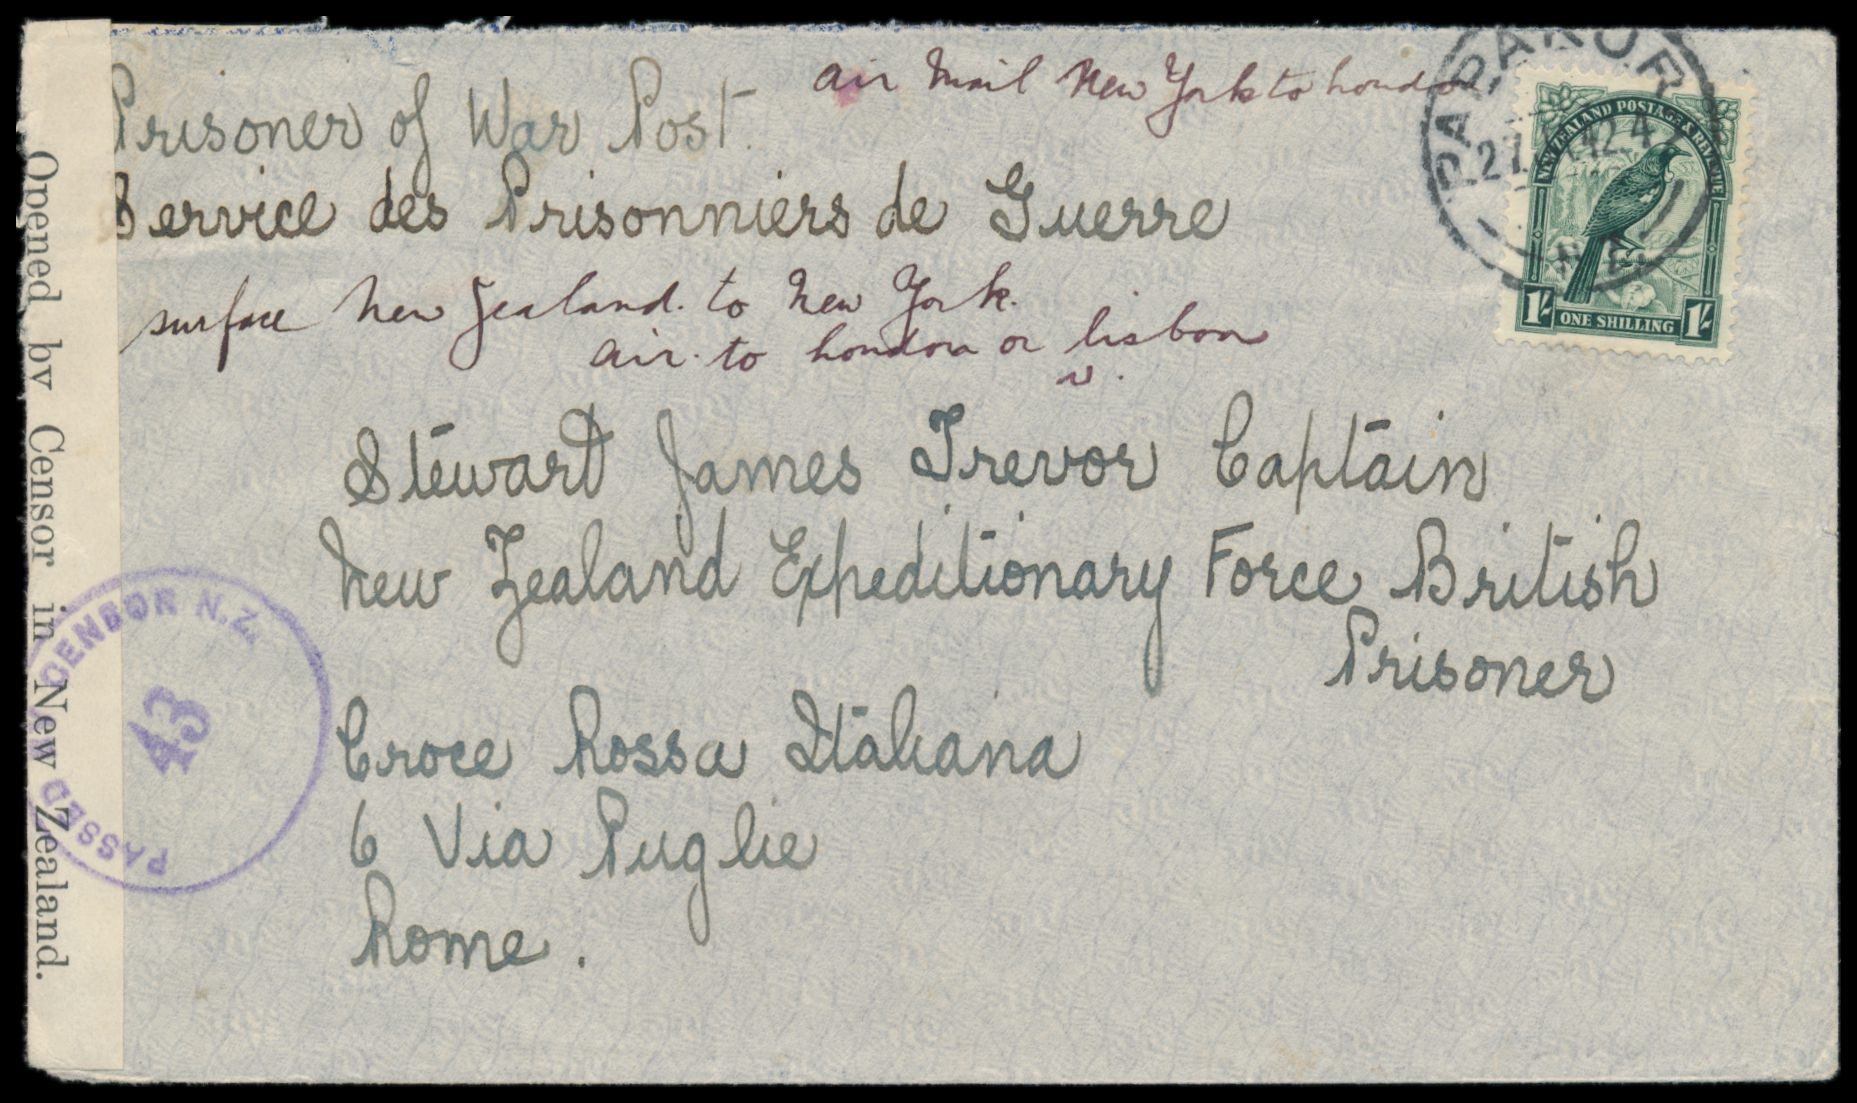 air mail New York to London
Prisoner of War Post.
Service des Prisonniers de Guerre
surface New Zealand. to New York.
air. to London or Lisbon
Stewart James Trevor Captain
New Zealand Expeditionary Force British
Prisoner
Croce Rossa Italiana
6 Via Puglie
Rome.
Opened by Censor in New Zealand.
PASSED CENSOR N.Z.
43
NEW ZEALAND POSTAGE & REVENUE
1/-
ONE SHILLING
1/-
N.Z.